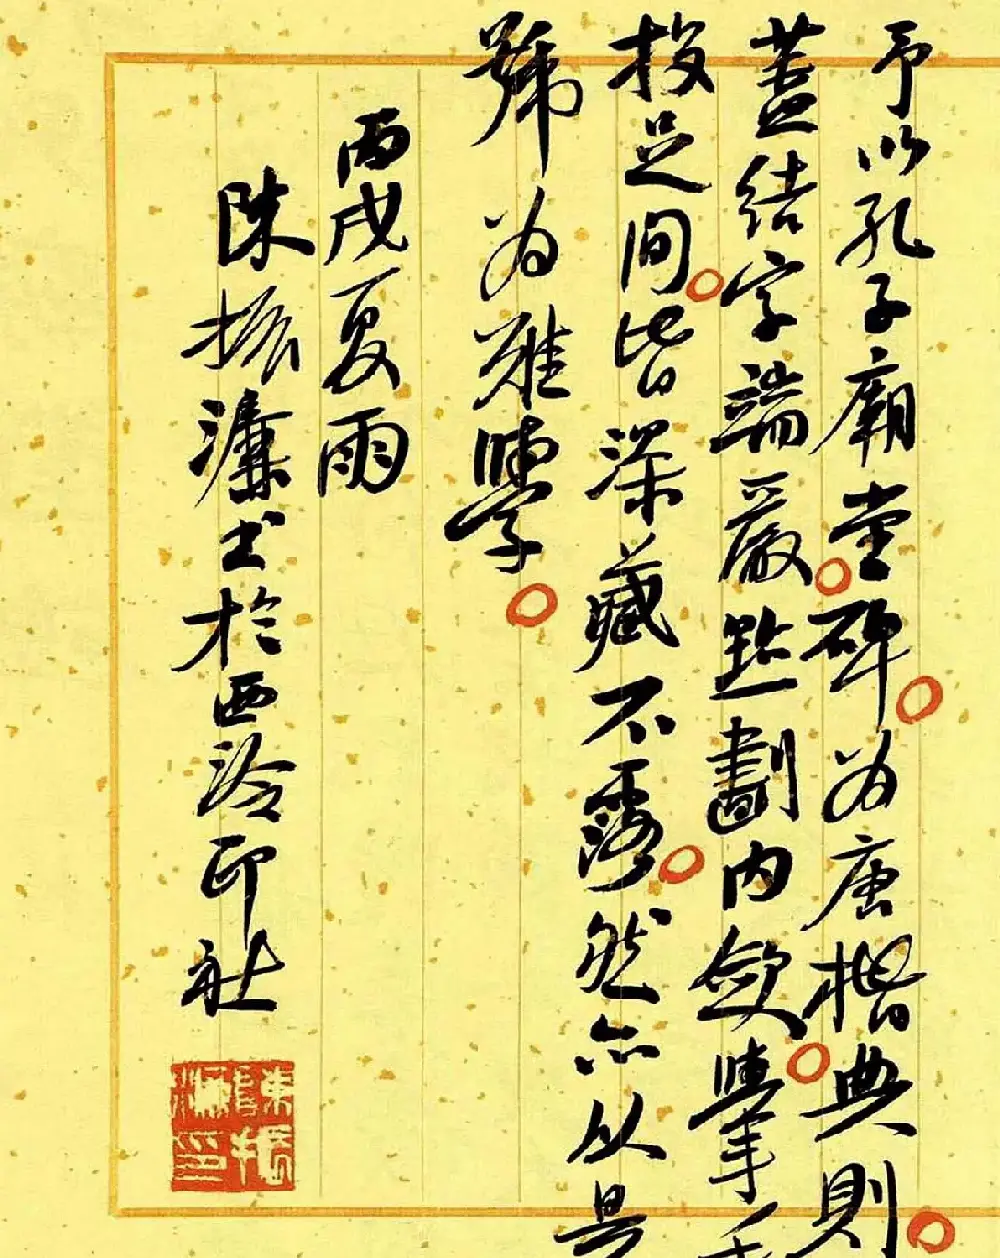 予以孔子廟堂碑为唐楷典則
蓋结字端嚴點劃内斂舉手
投足间皆深藏不露然亦以是
號为難學
丙戌夏雨
陳振濂书於西泠印社
陳振濂印